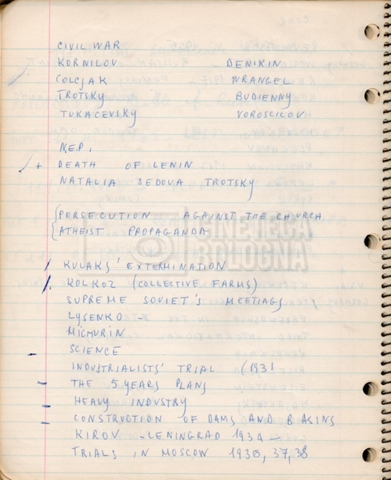 CIVIL WAR
KORNILOV DENIKIN
COLCJAK WRANGEL
TROTSKY BUDIENNY
TUKACEVSKY VOROSCILOV
N.E.P.
DEATH OF LENIN
NATALIA SEDOVA TROTSKY
PERSECUTION AGAINST THE CHURCH
ATHEIST PROPAGANDA
CINETECA
BOLOGNA
KULAKS' EXTERMINATION
KOLKOZ (COLLECTIVE FARMS)
SUPREME SOVIET'S MEETINGS
LYSENKO -
MICIURIN
SCIENCE
INDUSTRIALISTS' TRIAL (1931
- THE 5 YEARS PLANS
- HEAVY INDUSTRY
- CONSTRUCTION OF DAMS AND BASINS
KIROV - LENINGRAD 1934 -
TRIALS IN MOSCOW 1936, 37, 38